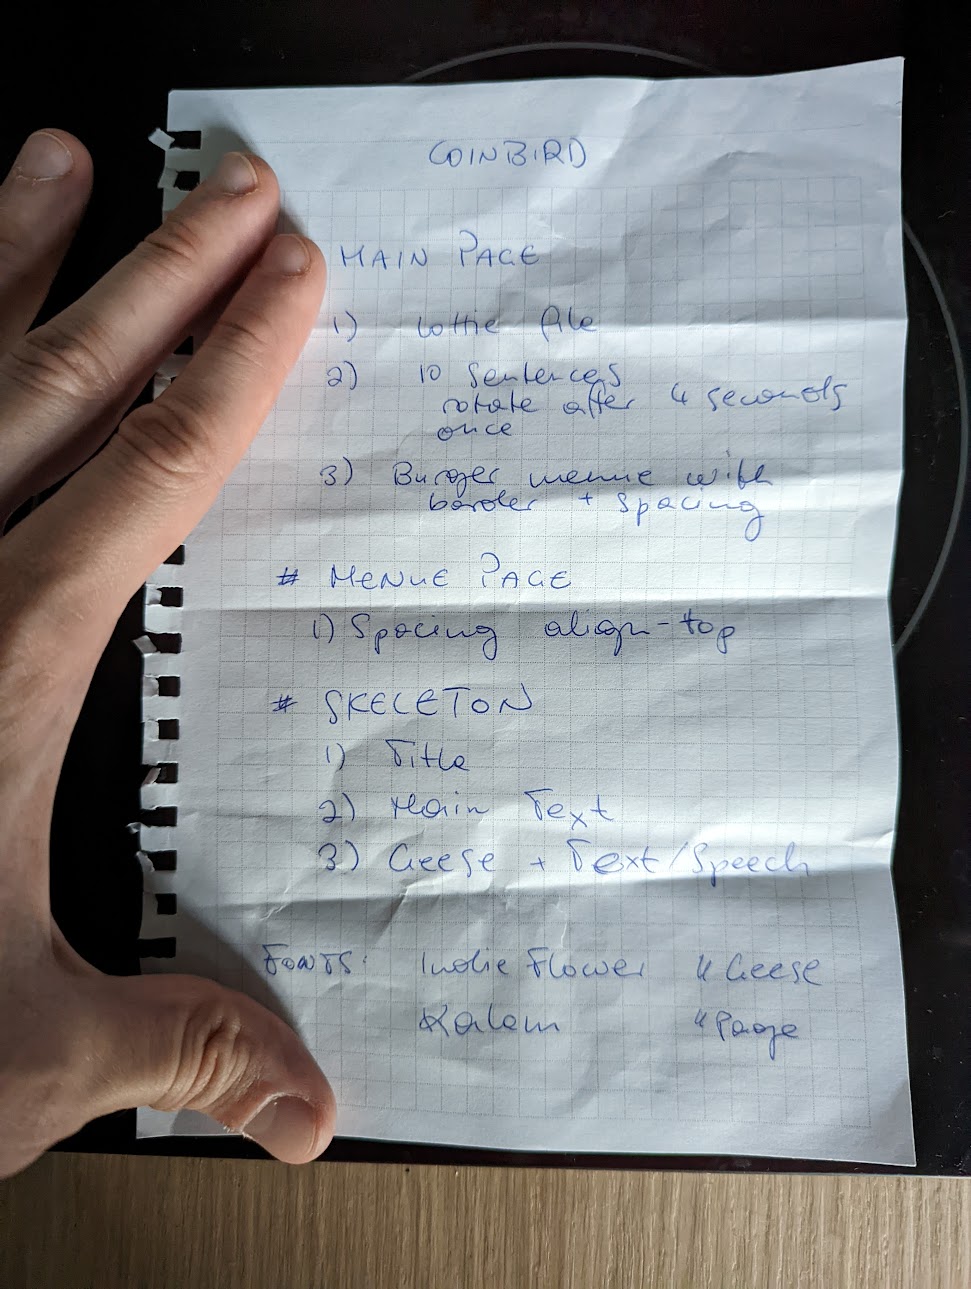 COINBIRD
MAIN PAGE
1) Lottie file
2) 10 Sentences
rotate after 4 seconds
once
3) Burger menue with
border + spacing
# MENUE PAGE
1) Spacing align-top
# SKELETON
1) Title
2) Main Text
3) Geese + Text/Speech
FONTS: Indie Flower 4 Geese
Kalam 4 Page